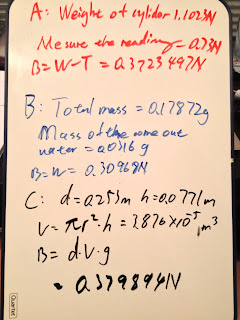 A: Weight of cylider 1.1023N
Mesure the reading = 0.73N
B=W-T = 0.3723497N
B: Total mass = 0.17872g
Mass of the come out
water = 0.0316g
B=W= 0.30968N
C: d=0.253m h=0.0771m
V=πr²·h =3.876×10⁻⁵ m³
B= d·V·g
= 0.379894N
Quartet